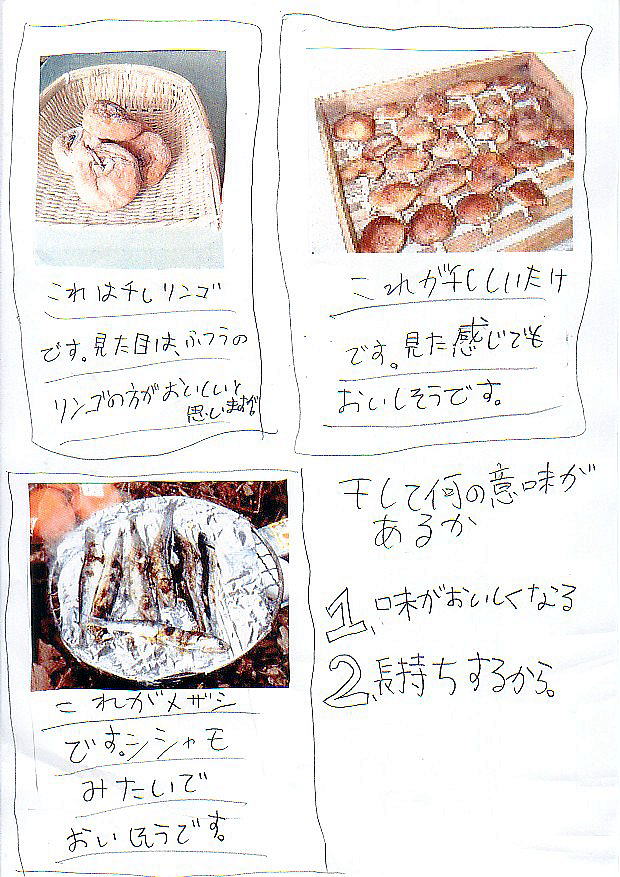 これは干しリンゴ
です。見た目は、ふつうの
リンゴの方がおいしいと
思いますが
これが干ししいたけ
です。見た感じでも
おいしそうです。
これがメザシ
です。シシャモ
みたいで
おいしそうです。
干して何の意味が
あるか
1、味がおいしくなる
2、長持ちするから。